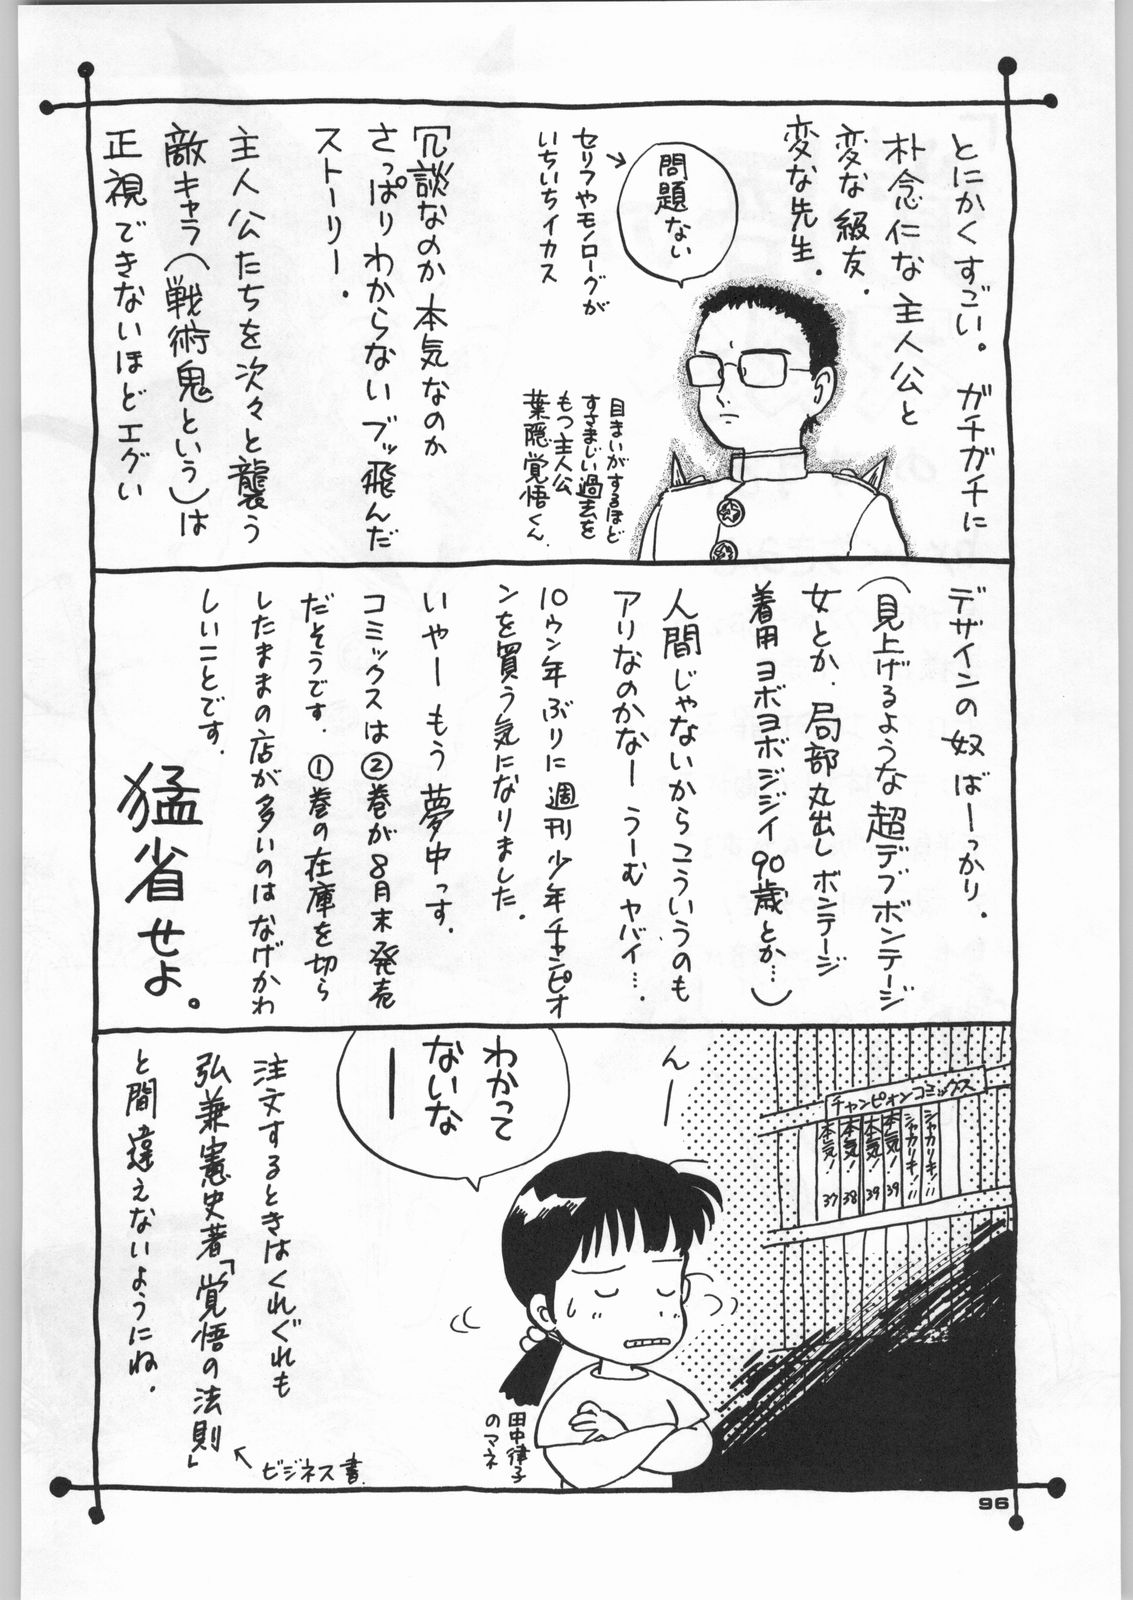 とにかくすごい。ガチガチに
朴念仁な主人公と
変な級友．
変な先生．
問題ない
セリフやモノローグが
いちいちイカス
目まいがするほど
すさまじい過去を
もつ主人公
葉隠覚悟くん．
冗談なのか本気なのか
さっぱりわからないブッ飛んだ
ストーリー．
主人公たちを次々と襲う
敵キャラ（戦術鬼という）は
正視できないほどエグい
デザインの奴ばーっかり．
（見上げるような超デブボンテージ
女とか．局部丸出しボンテージ
着用ヨボヨボジジイ90歳とか…）
人間じゃないからこういうのも
アリなのかなー うーむヤバイ…．
10ウン年ぶりに週刊少年チャンピオ
ンを買う気になりました．
いやーもう夢中っす．
コミックスは②巻が8月末発売
だそうです．①巻の在庫を切ら
したままの店が多いのはなげかわ
しいことです．
猛省せよ。
チャンピオンコミックス
シャカリキ！11
シャカリキ！11
本気！39
本気！39
本気！38
本気！37
んー
わかって
ないな
ー
田中律子
のマネ
注文するときはくれぐれも
弘兼憲史著「覚悟の法則」
ビジネス書．
と間違えないようにね．
96